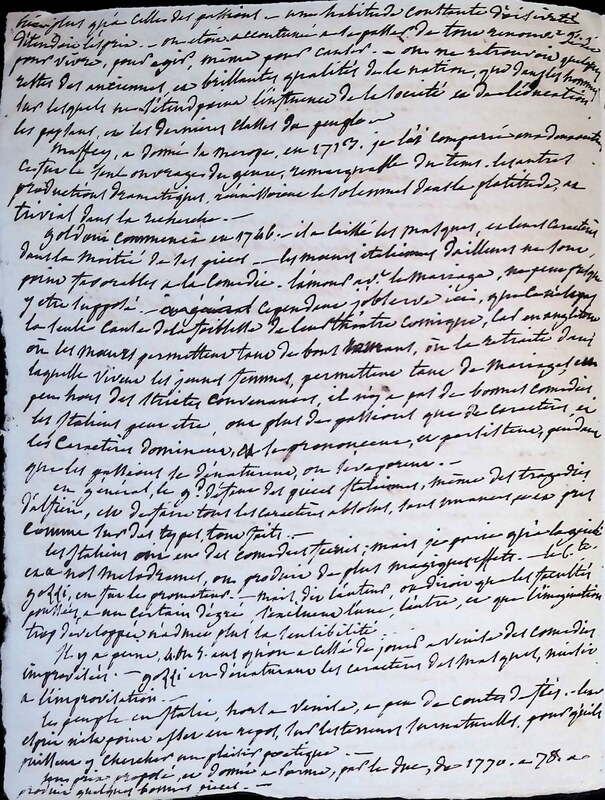 plus qu'à celles des passions. – une habitude constante d'oisiveté
détendoit l'esprit. – on étoit accoutumé à se passer de tout renoncer
pour vivre, pour agir, même pour causer. – on ne retrouvoit quelques
restes des anciennes, et brillantes qualités de la nation, que dans les hommes
sur lesquels ne s'étend pas l'influence de la société et de l'éducation
les paysans, et les dernières classes du peuple –
Maffey, a donné la Merope, en 1713. je l'ai comparée
c'est le seul ouvrage du genre, remarquable du tems. les autres
productions dramatiques, réunissoient le solemnel dans la platitude, au
trivial dans la recherche. –
goldoni commença en 1746 – il a laissé les masques, et leurs caractères
dans la moitié de ses pièces – les mœurs italiennes d'ailleurs ne sont
point favorables à la comédie. l'amour avt. le mariage, ne peut presque
y être supposé. – cependant j'observe ici, que ce n'est pas
la seule cause de la foiblesse de leur théâtre comique, car en angleterre
où les mœurs permettent tant de bons romans, où la retraite dans
laquelle vivent les jeunes femmes, permettent tant de mariages un
peu hors des strictes convenances, il n'y a pas de bonnes comédies
les Italiens peut être, ont plus de passions que de caractères, et
les caractères dominent, se prononcent, et persistent, pendant
que les passions se dénaturent, ou s'évaporent. –
en général, le gd. défaut des pièces Italiennes, même des tragédies
d'alfieri, est de faire tous les caractères absolus, sans nuances et
comme sur des types tout faits. –
les Italiens ont eu des comédies féeries; mais je pense qu'à
et à nos melodrames, on produit de plus magiques effets. – le Cte.
gozzi, en fut le promoteur. – mais dit l'auteur, on diroit que les facultés
poussées à un certain dégré s'excluent l'une, l'autre, et que l'imagination
trop développée n'admet plus la sensibilité. –
Il y a peine, ans qu'on a cessé de jouer à Venise des comédies
improvisées. – gozzi en dénaturant les caractères des masques, nuisit
à l'improvisation. –
le peuple en Italie, hors à Venise, a peu de contes de fées. –
esprit n'est point assez en repos, sur les terreurs surnaturelles, pour qu'ils
puissent y chercher un plaisir poétique. –
un prix proposé, et donné à Parme, par le duc, de 1770. à 78. a
produit quelques bonnes pièces. –